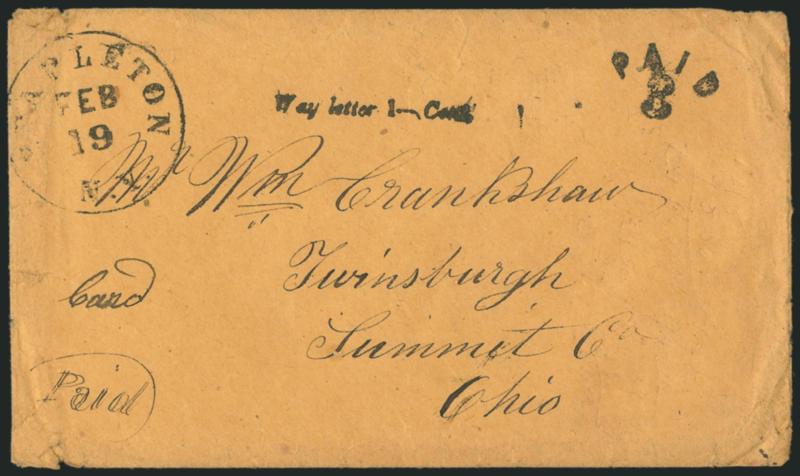 STAPLETON
FEB
19
N.Y.
Way letter 1— Cent
PAID
3
Mr Wm Crankshaw
Twinsburgh
Summit Co
Ohio
Card
Paid